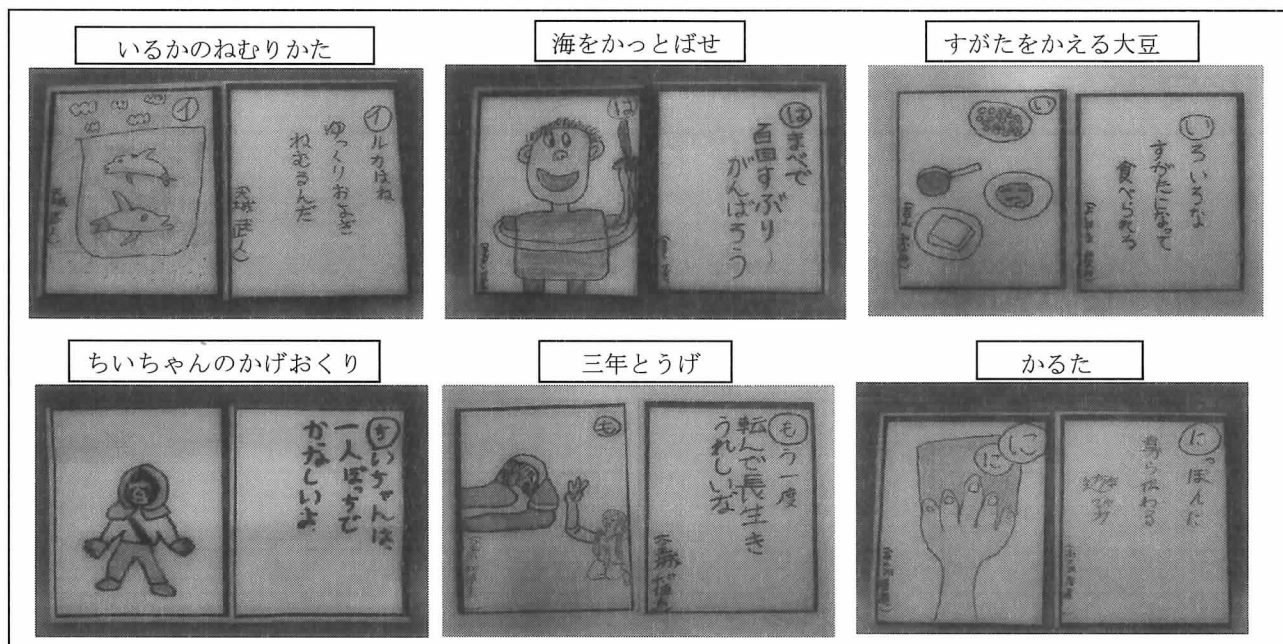 いるかのねむりかた
イ
イルカはね
ゆっくりおよぎ
ねむるんだ
海をかっとばせ
は
はまべで
百回すぶり
がんばろう
すがたをかえる大豆
い
いろいろな
すがたになって
食べられる
ちいちゃんのかげおくり
ちいちゃんは、
一人ぼっちで
かなしいよ
三年とうげ
も
もう一度
転んで長生き
うれしいな
かるた
に
に
にっぽんに
昔から伝わる